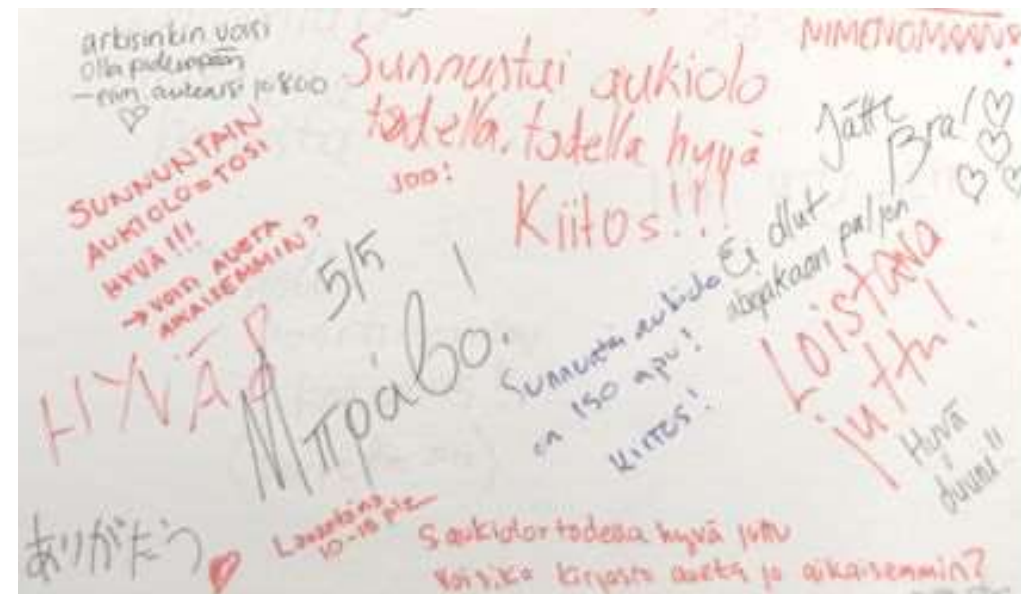 arkisinkin voisi
olla pidempään
jo 8:00
NIMENOMAAN!
Sunnuntai aukiolo
todella, todella hyvä
Kiitos!!!
JOO!
Jätte
Bra!
SUNNUNTAIN
AUKIOLO=TOSI
HYVÄ!!!
→ VOISI AUETA
AIKAISEMMIN?
5/5
HYVÄ!
Μπράβο!
Sunnuntai aukiolo
on iso apu!
KIITOS!
Ei ollut
paljon
Loistava
juttu!
Hyvä
duuni!!
ありがとう
Lauantaina
10-18 pls
S aukiolot todella hyvä juttu
Voisiko kirjasto aueta jo aikaisemmin?